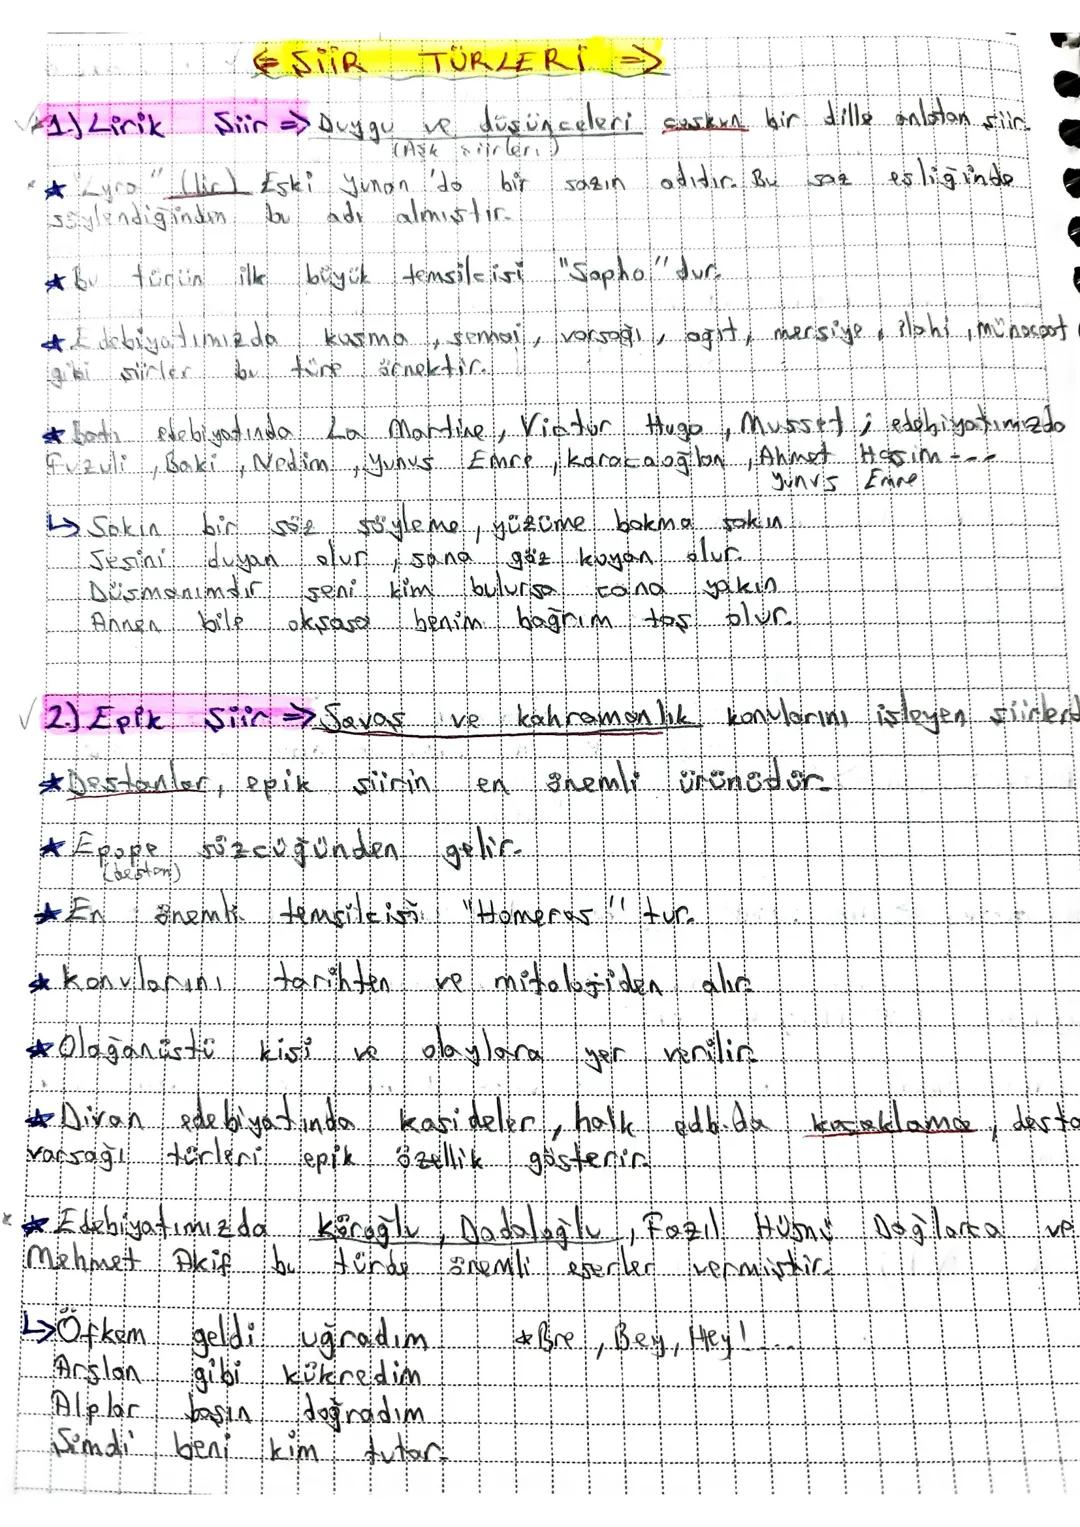 ⇐ ŞİİR TÜRLERİ ⇒
1.) Lirik Şiir ⇒ Duygu ve düşünceleri coşkun bir dille anlatan şiir.
(Aşk şiirleri)
★ "Lyra" (lir) Eski Yunan'da bir sazın adıdır. Bu saz eşliğinde
söylendiğinden bu adı almıştır.
★ Bu türün ilk büyük temsilcisi "Sapho" dur.
★ Edebiyatımızda koşma, semai, varsağı, ağıt, mersiye, ilahi, münacaat
gibi şiirler bu türe örnektir.
★ Batı edebiyatında La Martine, Victor Hugo, Musset; edebiyatımızda
Fuzuli, Baki, Nedim, Yunus Emre, Karacaoğlan, Ahmet Haşim ---
Yunus Emre
↳ Sakın bir söz söyleme, yüzüme bakma sakın
Sesini duyan olur, sana göz koyan olur.
Düşmanımdır seni kim bulursa cana yakın
Annen bile okşasa benim bağrım taş olur.
2.) Epik Şiir ⇒ Savaş ve kahramanlık konularını işleyen şiirlerd
★ Destanlar, epik şiirin en önemli ürünüdür.
★ Epope sözcüğünden gelir.
(destan)
★ En önemli temsilcisi "Homeros" tur.
★ Konularını tarihten ve mitolojiden alır.
★ Olağanüstü kişi ve olaylara yer verilir.
★ Divan edebiyatında kasideler, halk edb.da koçaklama, desta
varsağı türleri epik özellik gösterir.
★ Edebiyatımızda Köroğlu, Dadaloğlu, Fazıl Hüsnü Dağlarca ve
Mehmet Akif bu türde önemli eserler vermiştir.
↳ Öfkem geldi uğradım ★ Bre, Bey, Hey!....
Arslan gibi kükredim
Alplar başın doğradım
Şimdi beni kim tutar.